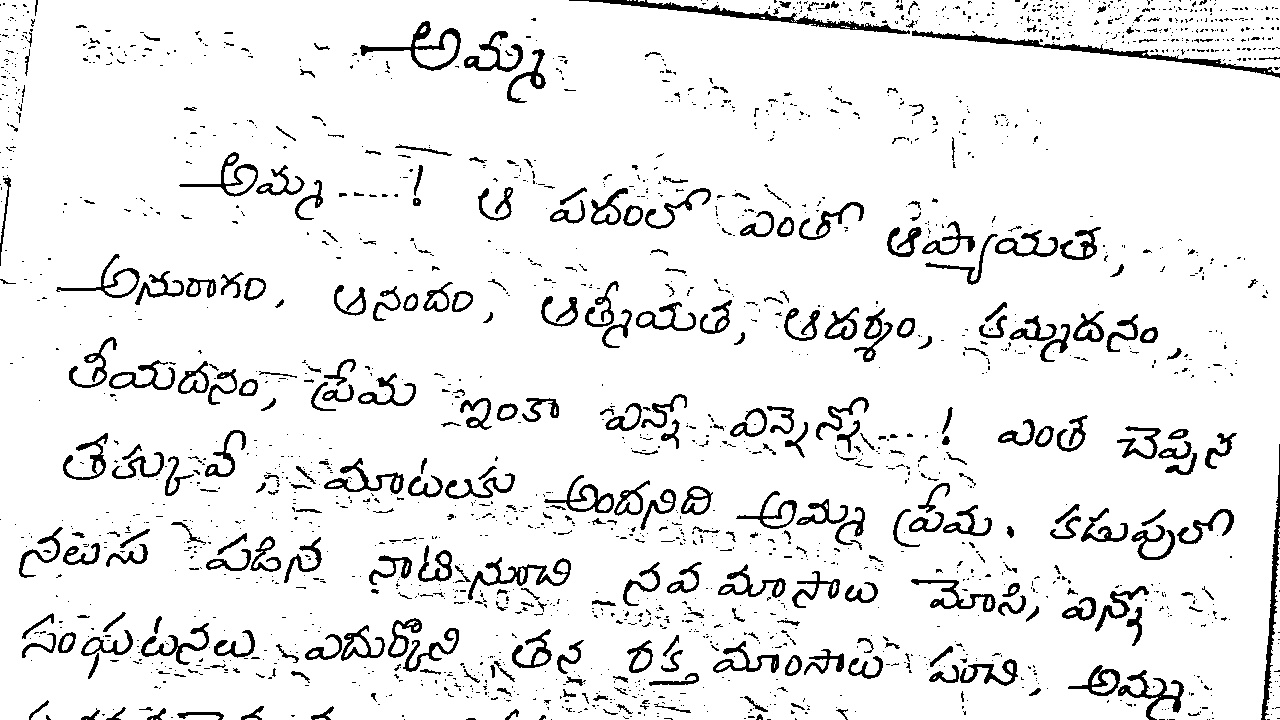 అమ్మ
అమ్మ .....! ఆ పదంలో ఎంతో ఆప్యాయత,
అనురాగం, ఆనందం, ఆత్మీయత, ఆదర్శం, కమ్మదనం,
తీయదనం, ప్రేమ ఇంకా ఎన్నో ఎన్నెన్నో ....! ఎంత చెప్పిన
తక్కువే, మాటలకు అందనిది అమ్మ ప్రేమ. కడుపులో
నలుసు పడిన నాటినుంచి నవ మాసాలు మోసి, ఎన్నో
సంఘటనలు ఎదుర్కొని, తన రక్త మాంసాలు పంచి, అమ్మ